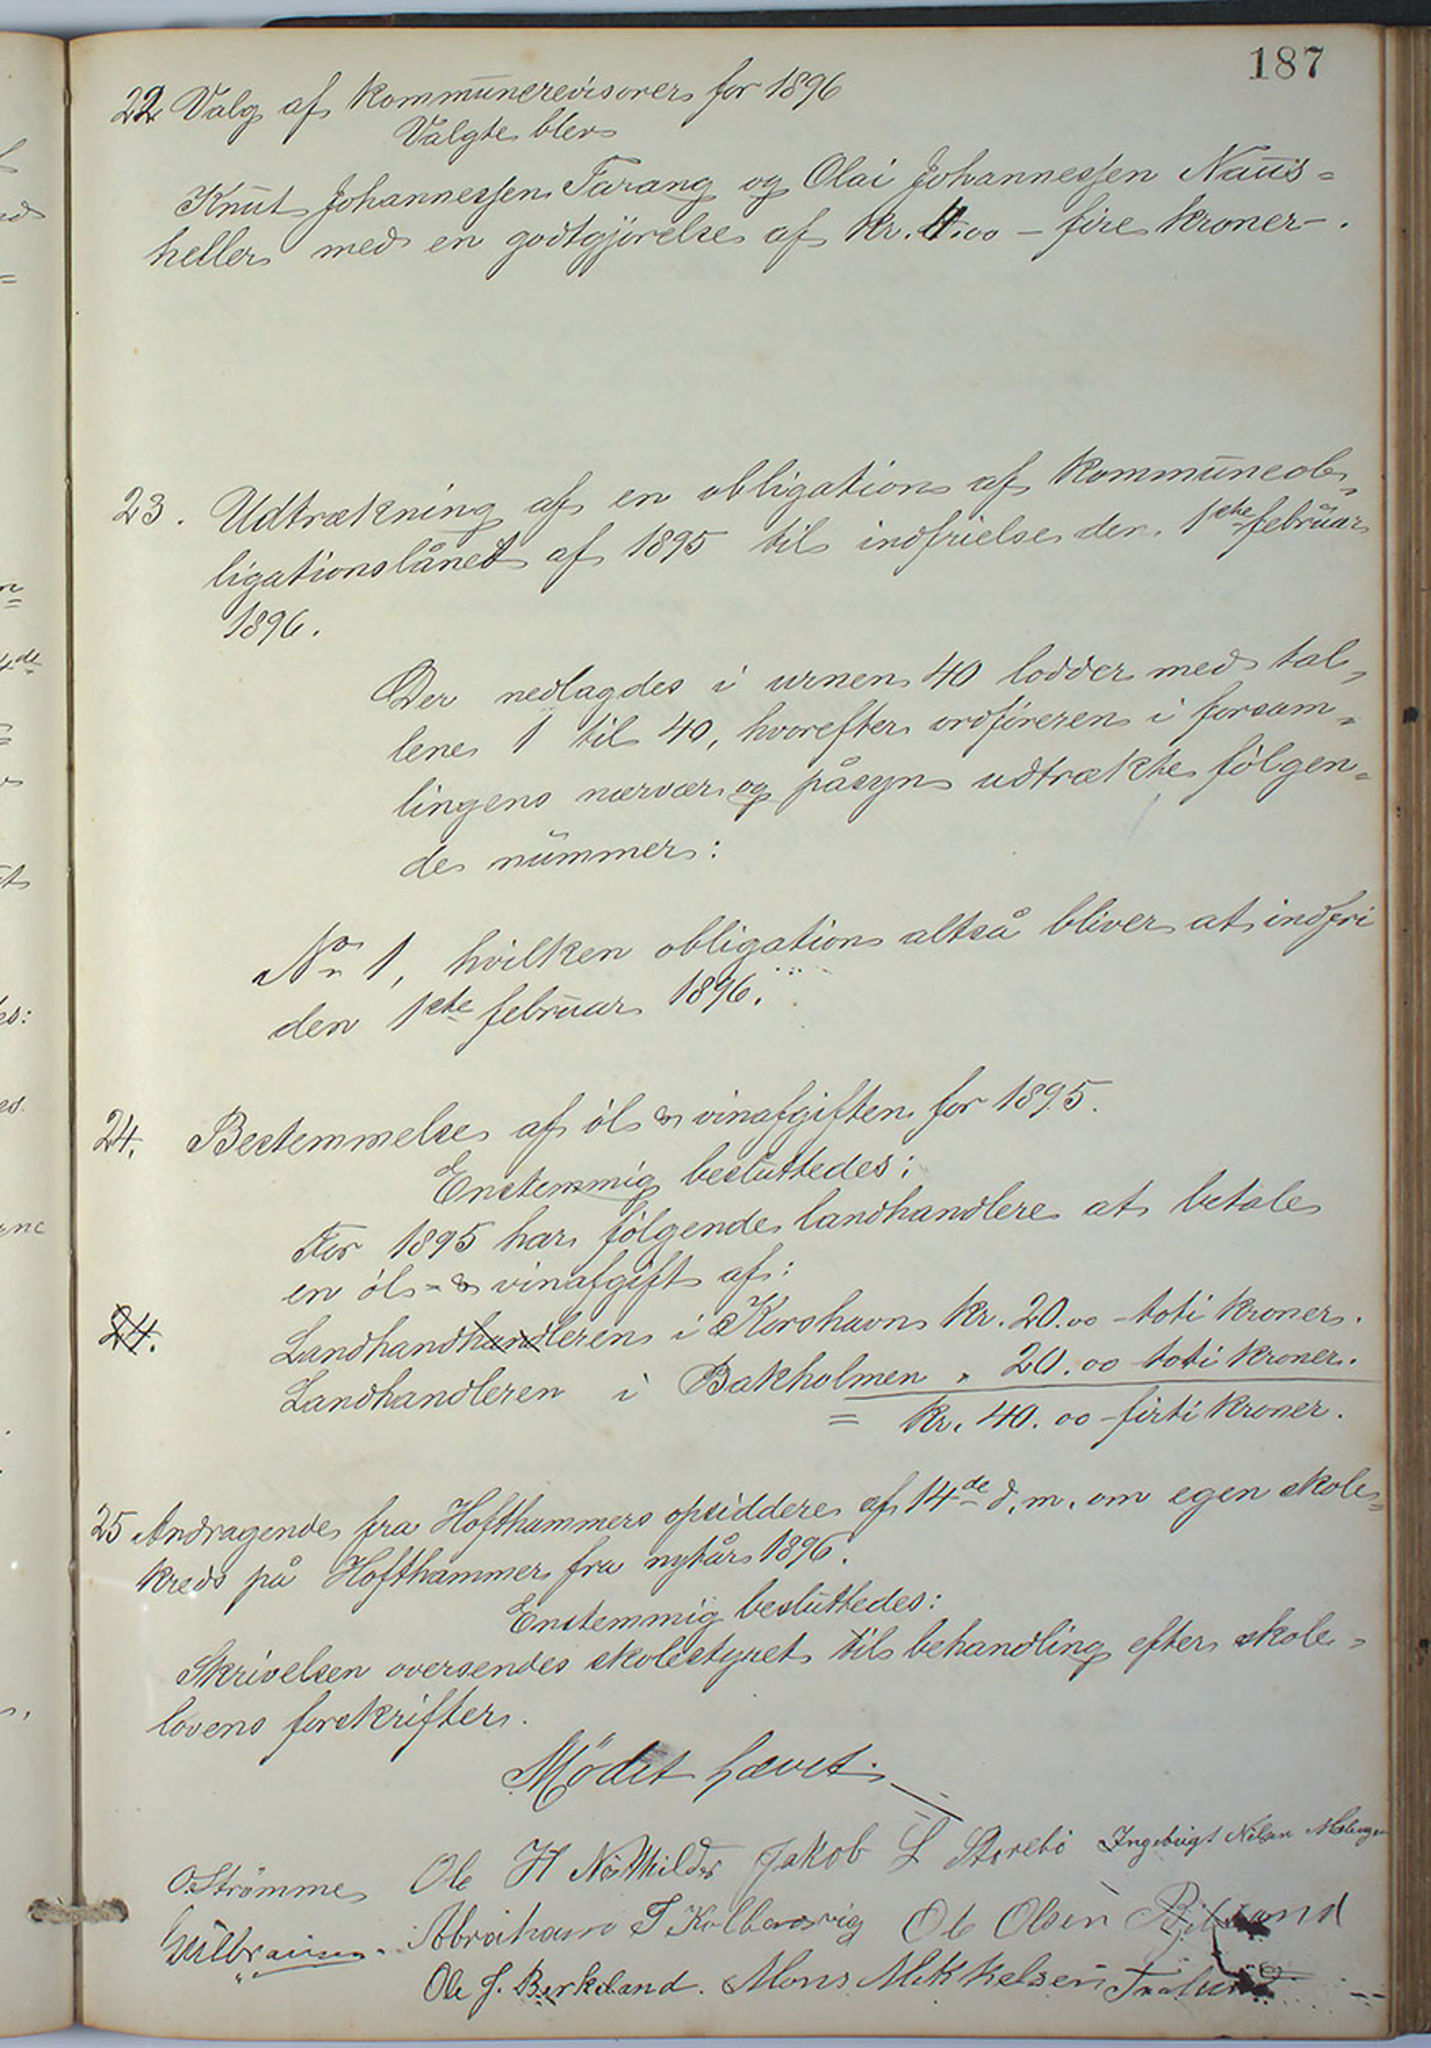 187
22. Valg af kommunerevisorer for 1896
Valgte blev
Knut Johannessen Tarang og Olai Johannessen Naus=
heller med en godtgjørelse af kr. 4.00 – fire kroner –.
23. Udtrækning af en obligation af kommuneob-
ligationslånet af 1895 til indfrielse den 1ste februar
1896.
Der nedlagdes i urnen 40 lodder med tal-
lene 1 til 40, hvorefter ordføreren i forsam-
lingens nærvær og påsyn udtrækte følgen-
de nummer:
No 1, hvilken obligation altså bliver at indfri
den 1ste februar 1896.
24. Bestemmelse af øl & vinafgiften for 1895.
Enstemmig besluttedes:
For 1895 har følgende landhandlere at betale
en øl- & vinafgift af:
24. Landhandhandleren i Korshavn kr. 20.00 – toti kroner.
Landhandleren i Bakholmen " 20.00 toti kroner.
= kr. 40.00 – firti kroner.
25 Andragende fra Hofthammers opsiddere af 14de d.m. om egen skole-
kreds på Hofthammer fra nytår 1896.
Enstemmig besluttedes:
Skrivelsen oversendes skolestyret til behandling efter skole-
lovens forskrifter.
Mødet hævet.
O. Strømme Ole H Jakob L Storebø Ingebrigt Nilsen
Abraham T Kolbensvig Ole Olsen
Ole J. Birkeland. Mons Mikkelsen